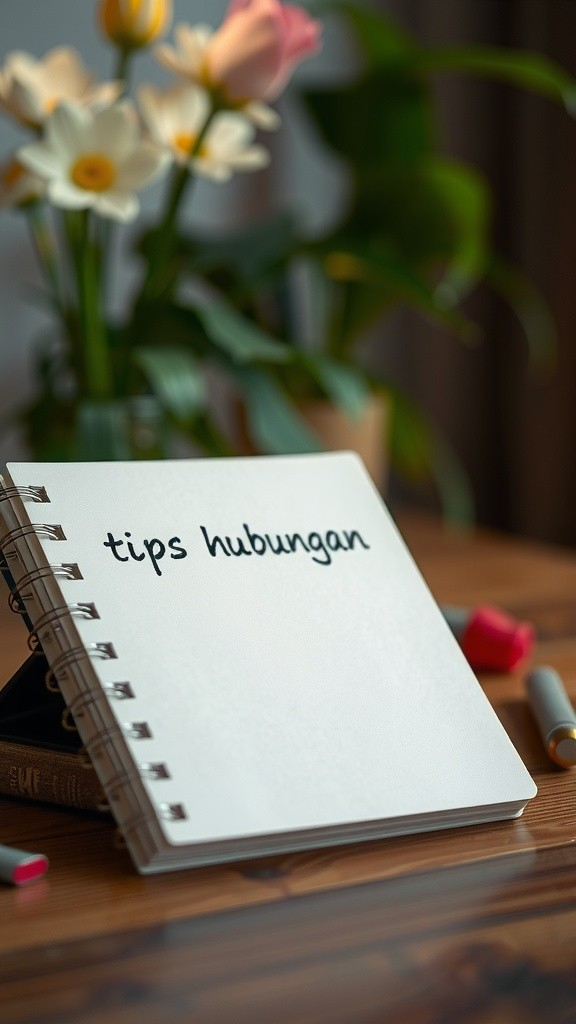 tips hubungan